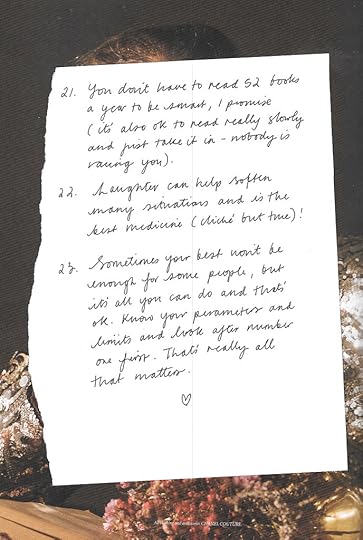 21. You don't have to read 52 books
a year to be smart, I promise
(it's also ok to read really slowly
and just take it in - nobody is
racing you).
22. Laughter can help soften
many situations and is the
best medicine (cliché but true)!
23. Sometimes your best won't be
enough for some people, but
it's all you can do and that's
ok. Know your parameters and
limits and look after number
one first. That's really all
that matters.
CHANEL COUTURE